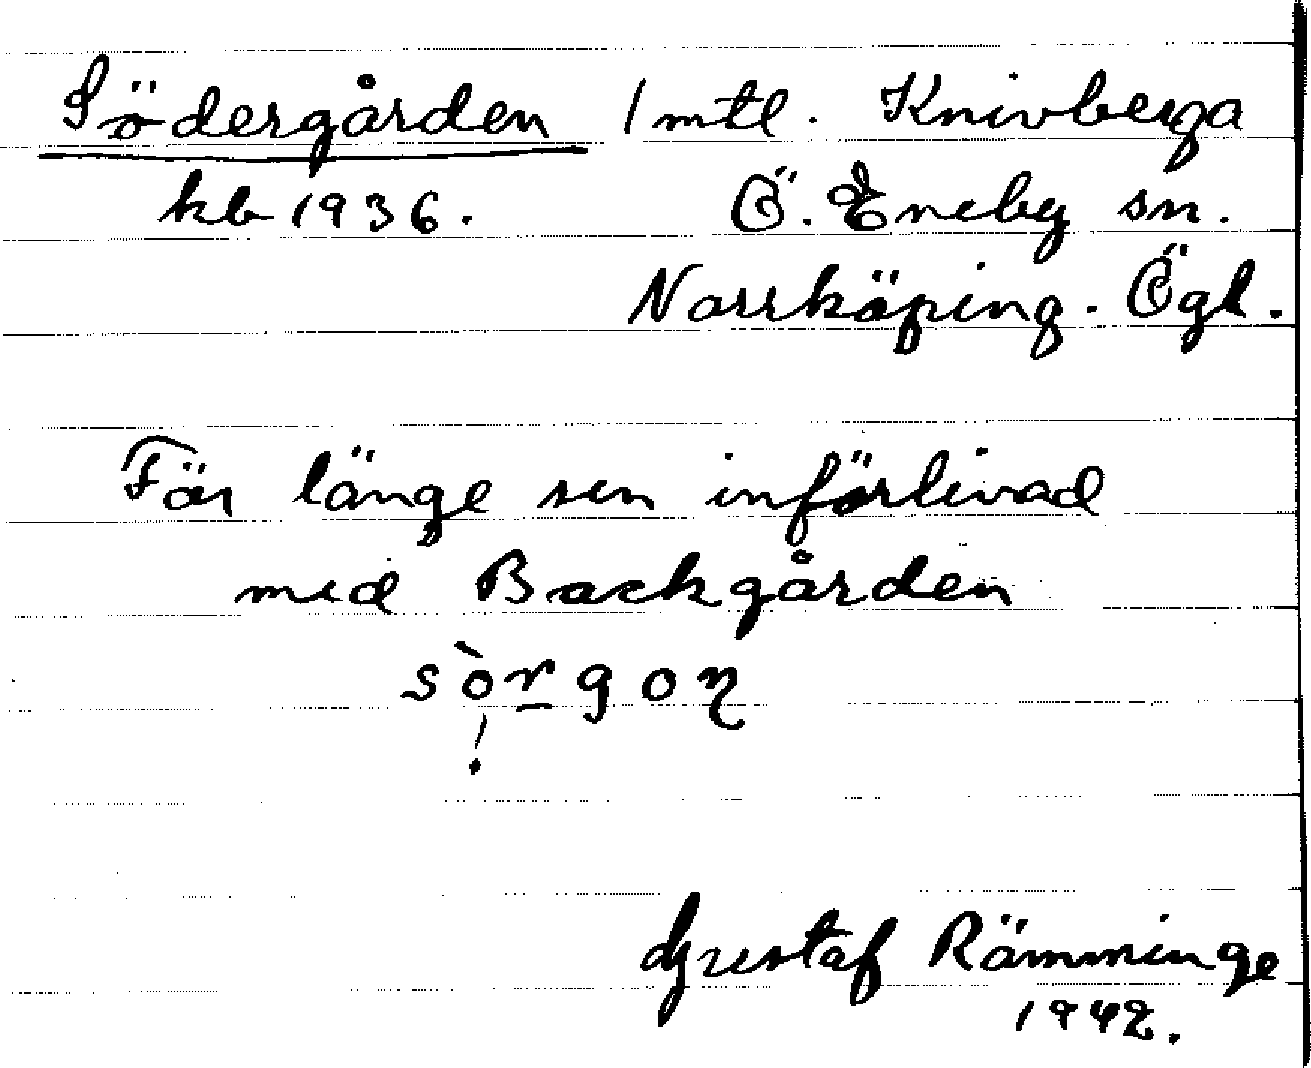 Södergården 1 mtl. Knivberga
kb 1936. Ö. Eneby sn.
Norrköping. Ögl.
För länge sen införlivad
med Backgården
sòrgon
Gustaf Rämminge
1942.